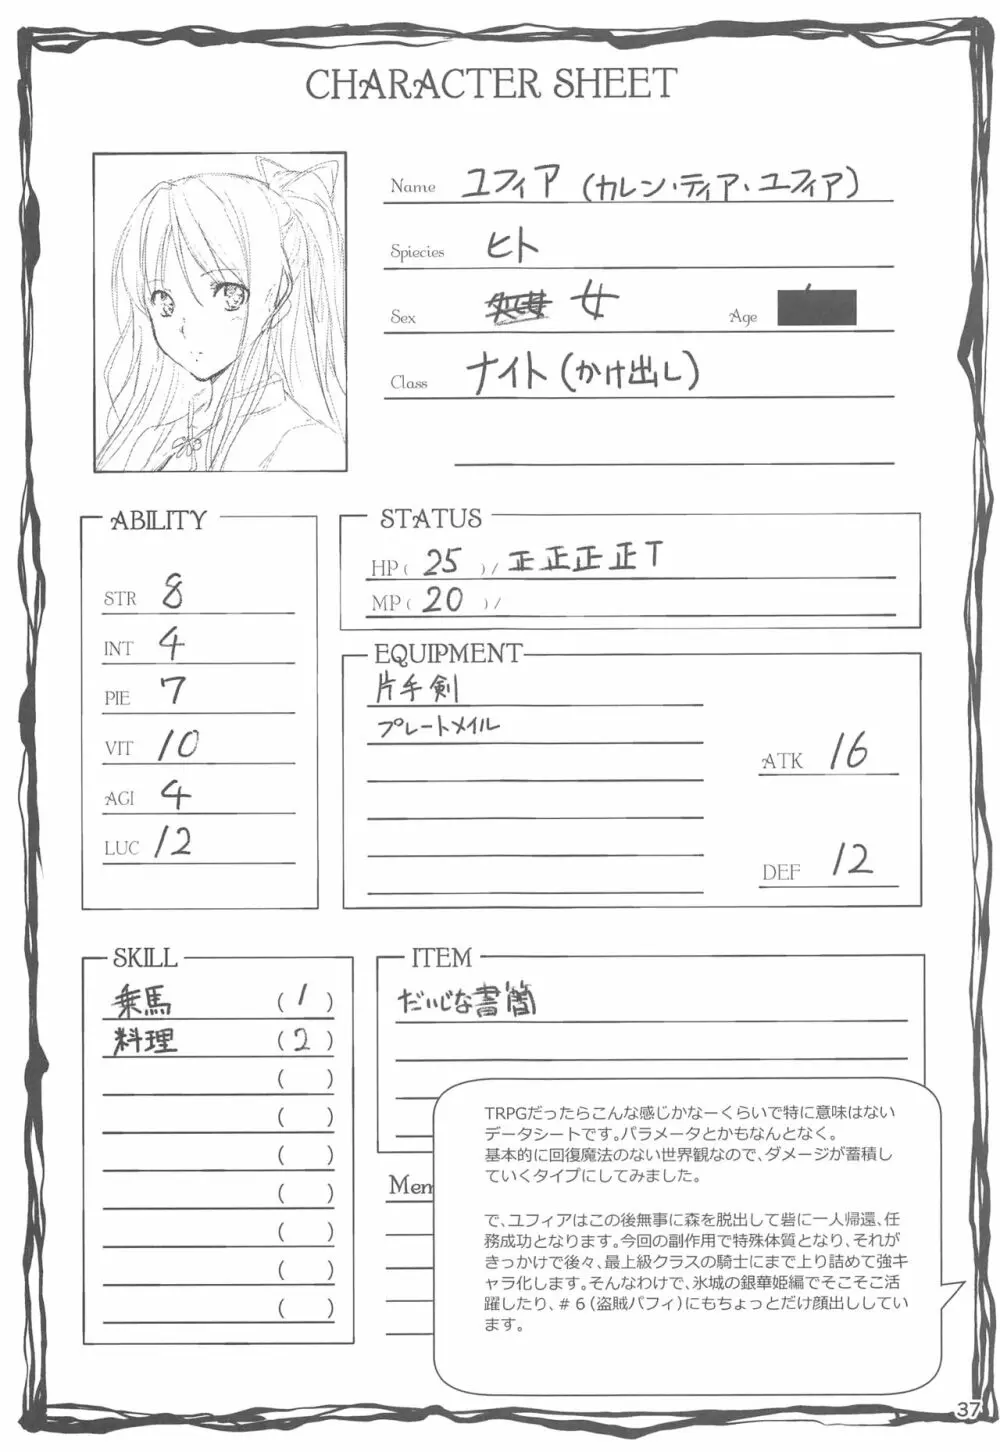 CHARACTER SHEET
Name ユフィア (カレン・ティア・ユフィア)
Spiecies ヒト
Sex 女 Age
Class ナイト (かけ出し)
ABILITY
STR 8
INT 4
PIE 7
VIT 10
AGI 4
LUC 12
STATUS
HP( 25 )/ 正正正正T
MP( 20 )/
EQUIPMENT
片手剣
プレートメイル
ATK 16
DEF 12
SKILL
乗馬 ( 1 )
料理 ( 2 )
( )
( )
( )
( )
( )
( )
( )
ITEM
だいじな書簡
Mem
TRPGだったらこんな感じかなーくらいで特に意味はない
データシートです。パラメータとかもなんとなく。
基本的に回復魔法のない世界観なので、ダメージが蓄積し
ていくタイプにしてみました。
で、ユフィアはこの後無事に森を脱出して砦に一人帰還、任
務成功となります。今回の副作用で特殊体質となり、それが
きっかけで後々、最上級クラスの騎士にまで上り詰めて強キ
ャラ化します。そんなわけで、氷城の銀華姫編でそこそこ活
躍したり、＃６(盗賊パフィ)にもちょっとだけ顔出ししてい
ます。
37